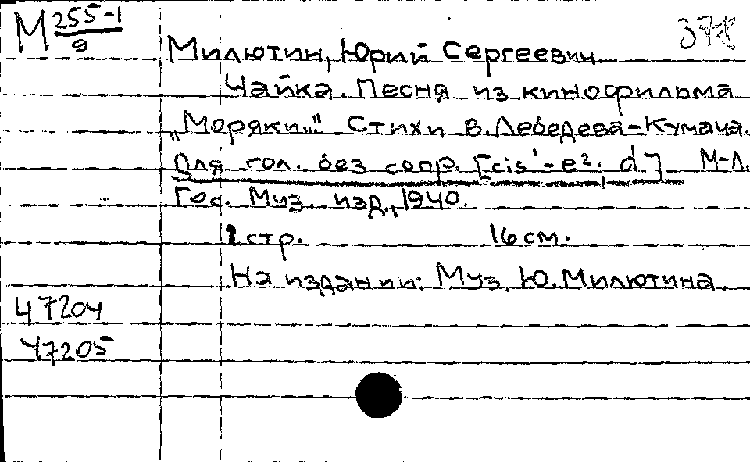 М 255-1/9
Милютин, Юрий Сергеевич
Чайка. Песня из кинофильма
„Моряки". Стихи В. Лебедева-Кумача.
Для гол. без сопр. [cis¹-e². d] М-Л.
Гос. Муз. изд., 1940.
1 стр. 16 см.
На издании: Муз. Ю. Милютина
47204
47205